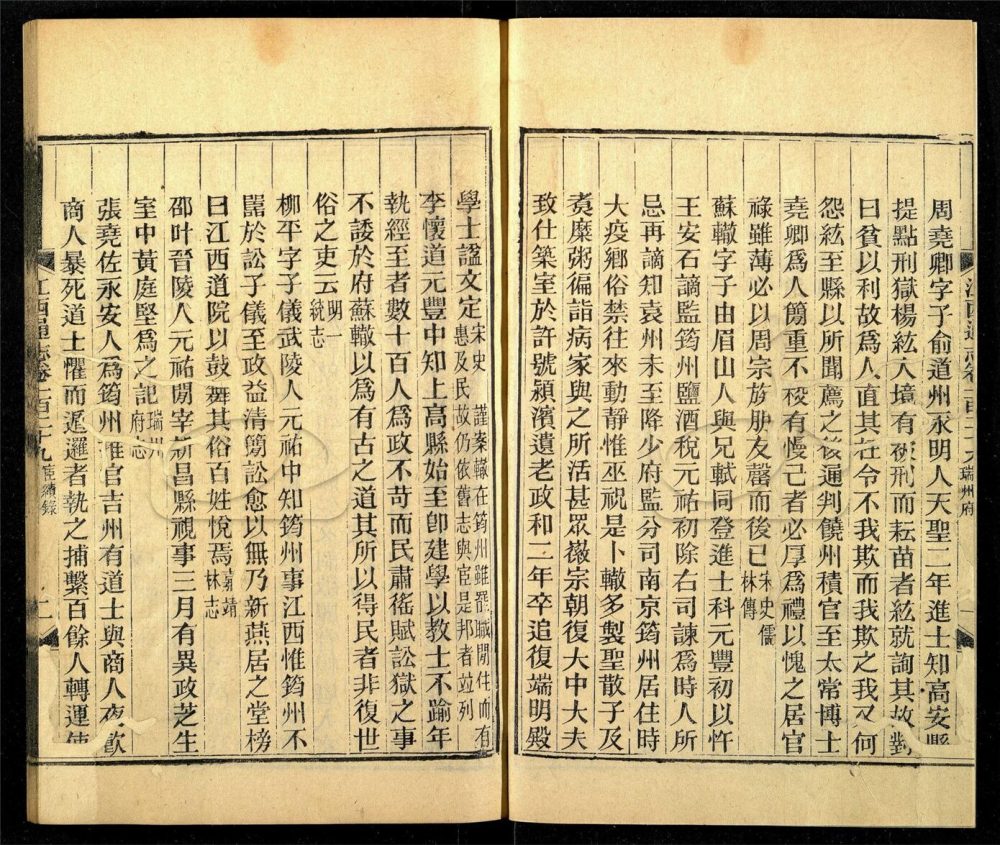 周堯卿字子俞道州永明人天聖二年進士知高安縣
提點刑獄楊紘入境有被刑而耘苗者紘就詢其故對
曰貧以利故為人直其枉令不我欺而我欺之我又何
怨紘至縣以所聞薦之後通判饒州積官至太常博士
堯卿為人簡重不校有慢己者必厚為禮以愧之居官
祿雖薄必以周宗族朋友罄而後已宋史儒林傳
蘇轍字子由眉山人與兄軾同登進士科元豐初以忤
王安石謫監筠州鹽酒稅元祐初除右司諫為時人所
忌再謫知袁州未至降少府監分司南京筠州居住時
大疫鄉俗禁往來動靜惟巫祝是卜轍多製聖散子及
煑糜粥徧詣病家與之所活甚眾徽宗朝復大中大夫
致仕築室於許號潁濱遺老政和二年卒追復端明殿
江西通志卷一百二十九 瑞州府 一
學士諡文定宋史 謹案轍在筠州雖罷職閒住而有惠及民故仍依舊志與宦是邦者竝列
李懷道元豐中知上高縣始至卽建學以教士不踰年
執經至者數十百人為政不苛而民肅徭賦訟獄之事
不諉於府蘇轍以為有古之道其所以得民者非復世
俗之吏云明一統志
柳平字子儀武陵人元祐中知筠州事江西惟筠州不
嚚於訟子儀至政益清簡訟愈以無乃新燕居之堂榜
曰江西道院以鼓舞其俗百姓悅焉嘉靖林志
邵叶晉陵人元祐閒宰新昌縣視事三月有異政芝生
室中黃庭堅為之記瑞州府志
張堯佐永安人為筠州推官吉州有道士與商人夜飲
商人暴死道士懼而遁邏者執之捕繫百餘人轉運使
江西通志卷一百二十九 宦績錄 二